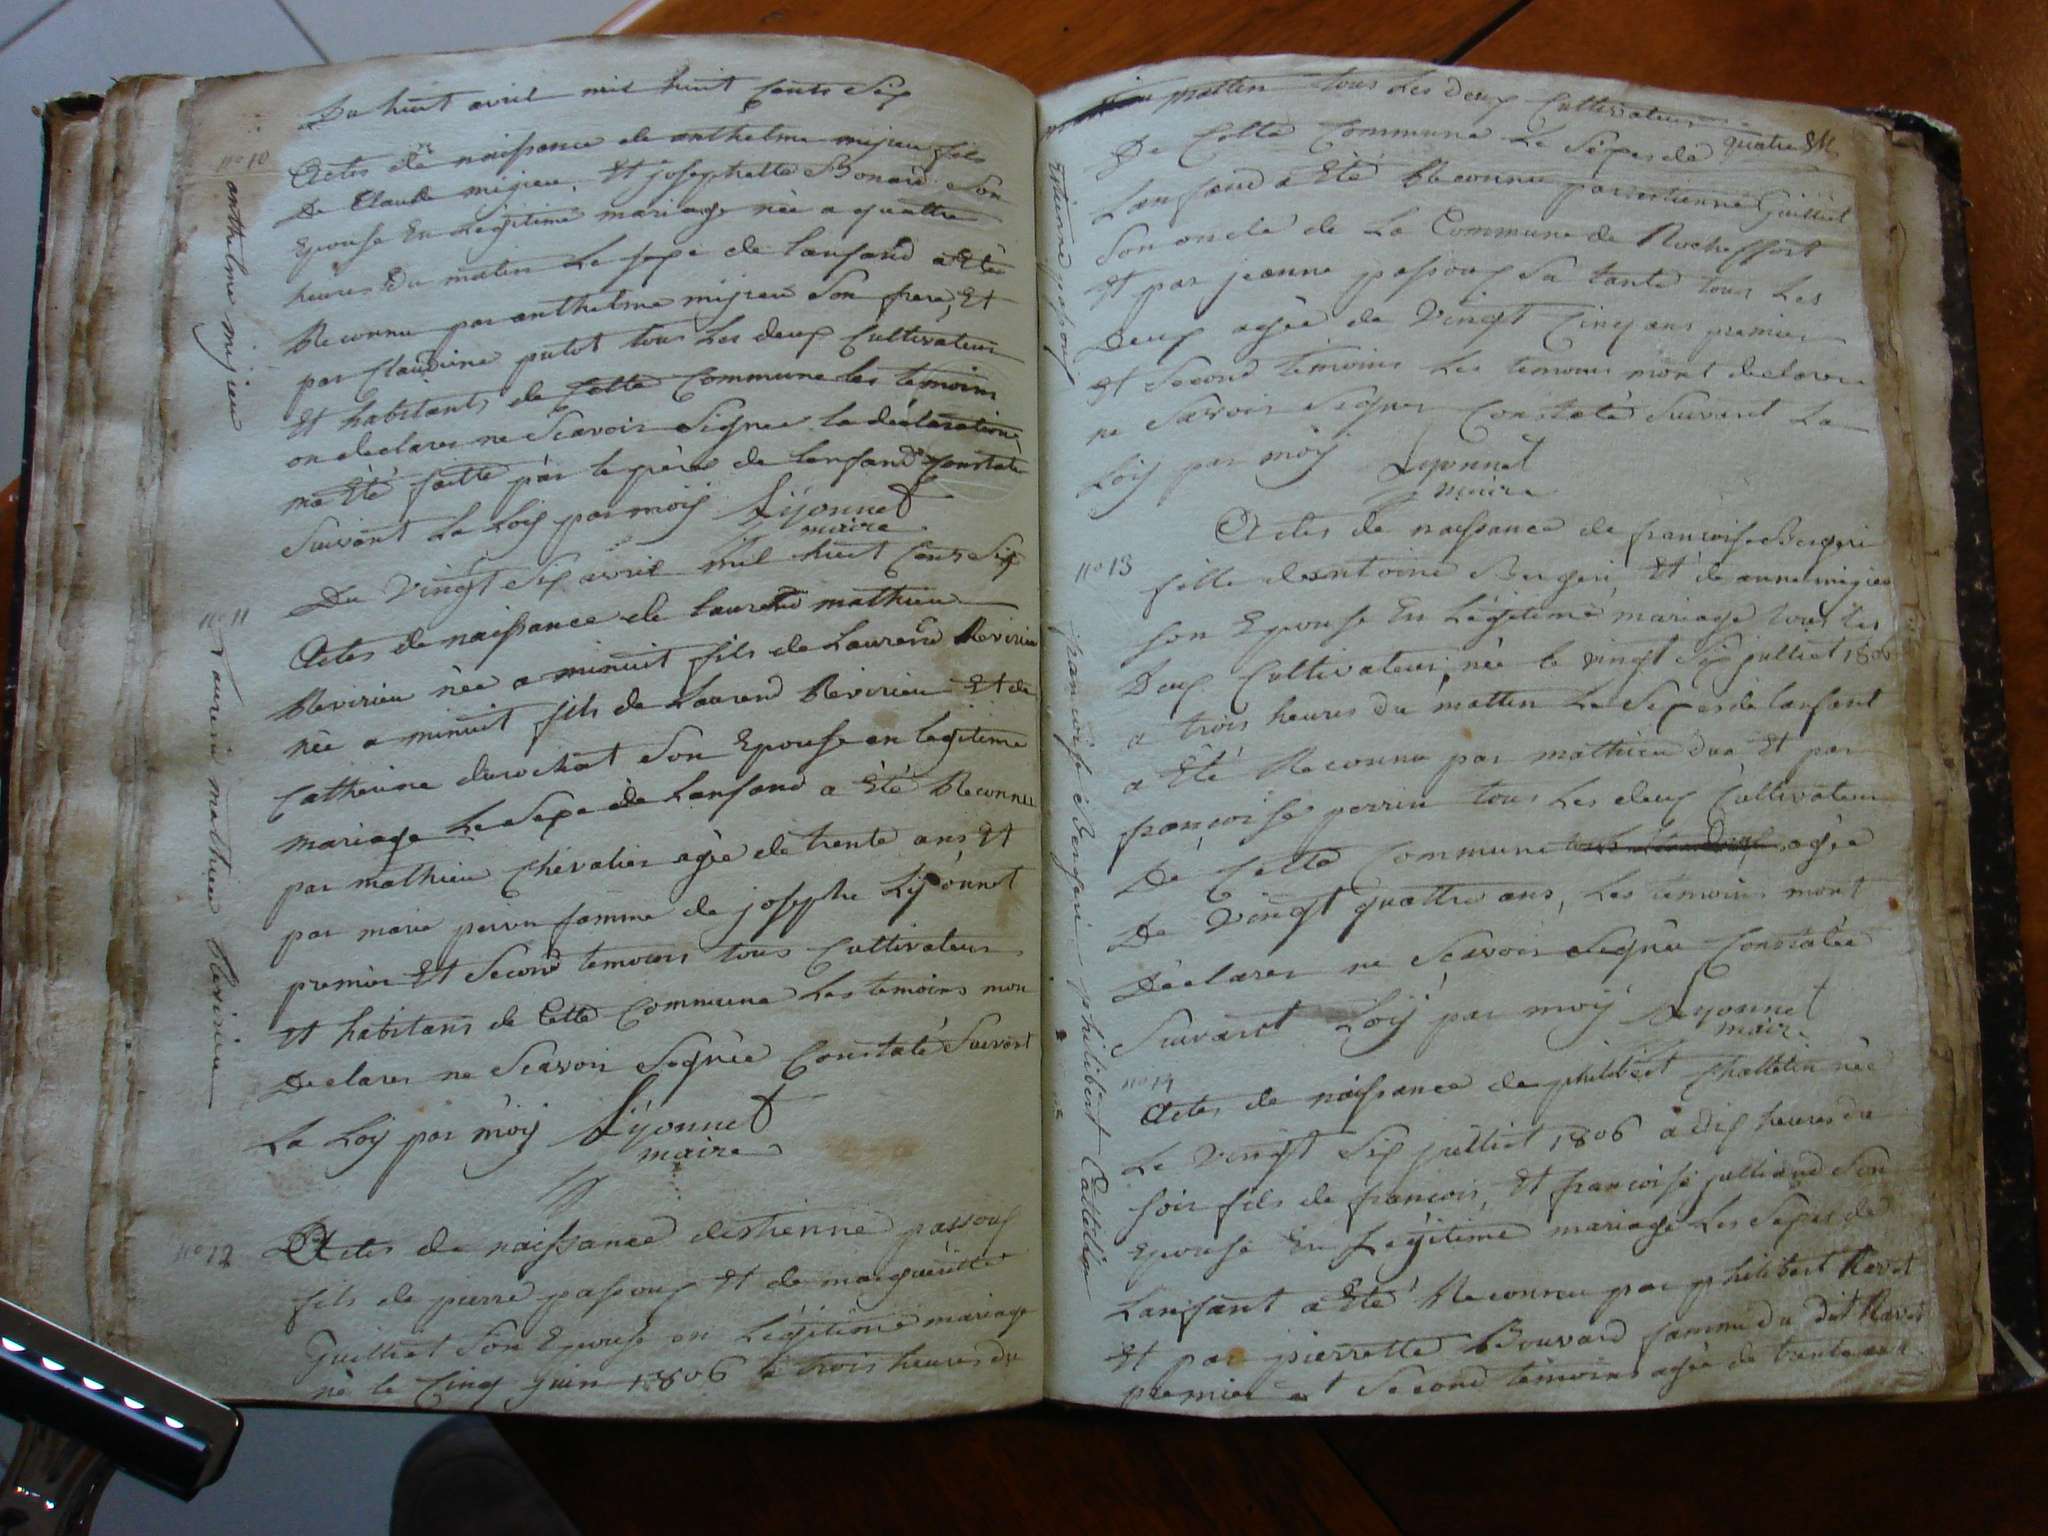 Du huit avril mil huit Cents Six
no 10
anthelme mijieu
Actes de naissance de anthelme mijieu fils
De Claude mijieu, Et josephette Bonard Son
Epouse En Legitime mariage née a quattre
heures Du matin Le sexe de Lanfand a Eté
Reconnu par anthelme mijieu Son frere, Et
par Claudine putot tous Les deux Cultivateurs
Et habitants de Cette Commune les temoins
on declarer ne Scavoir Signer la déclaration
ma Eté faitte par le père de Lenfand Constaté
Suivant La Loij par moij Lijonnet
maire
Du Vingt Six avril mil huit Cents Six
no 11
Laurend mathieu Revirieu
Actes de naissance de Laurend mathieu
Revirieu née a minuit fils de Laurend Revirieu
née a minuit fils de Laurend Revirieu Et de
Catherine durochat Son Epouse en legitime
mariage Le Sexe de Lanfand a Eté Reconnu
par mathieu Chevalier agée de trente ans Et
par marie perrin famme de josephe Lijonnet
premier Et Second temoins tous Cultivateurs
Et habitans de Cette Commune Les temoins mon
Declarer ne Scavoir Signée Constaté Suivant
La Loij par moij Lijonnet
maire
no 12
Actes de naissance destienne passouf
fils de pierre passouf Et de margueritte
Guilliet Son Epouse en Légitime mariage
né le Cinq juin 1806 a trois heures du
matten tous Les deux Cultivateurs
De Cette Commune Le Sexes de quatre
Estienne passouf
Lanfand a Eté Reconnu par estienne Guilliet
Son oncle de La Commune de Rocheffort
Et par jeanne passouf Sa tante tous Les
Deux agée de Vingt Cinq ans premier
Et Second temoins Les temoins mont declarer
ne Savoir Signer Constaté Suivant La
Loij par moij Lyonnet
maire
no 13
francoise Bergeri
Actes de naissance de francoise Bergeri
fille dantoine Bergeri, Et de anne mijieu
Son Epouse En Légitime mariage tous Les
Deux Cultivateur, née le vingt Six julliet 1806
a trois heures du matten Le Sexes de Lanfant
a Eté Reconnu par mathieu dua Et par
francoise perrin tous Les deux Cultivateur
De Cette Commune agée
De Vingt quattre ans, Les temoins mont
Déclarer ne Scavoir Signée Constatée
Suivant Loij par moij Lyonnet
maire
no 14
philibert Cattelin
Actes de naissance de philibert Chattelin née
Le vingt Six julliet 1806 a dix heures du
Soir fils de francois, Et francoise julliand Son
Epouse En Légitime mariage Les Sexes de
Lanfant a Eté Reconnu par philibert Ravet
Et par pierrette Bouvard famme du dit Ravet
premier et Second temoins agée de trente ans